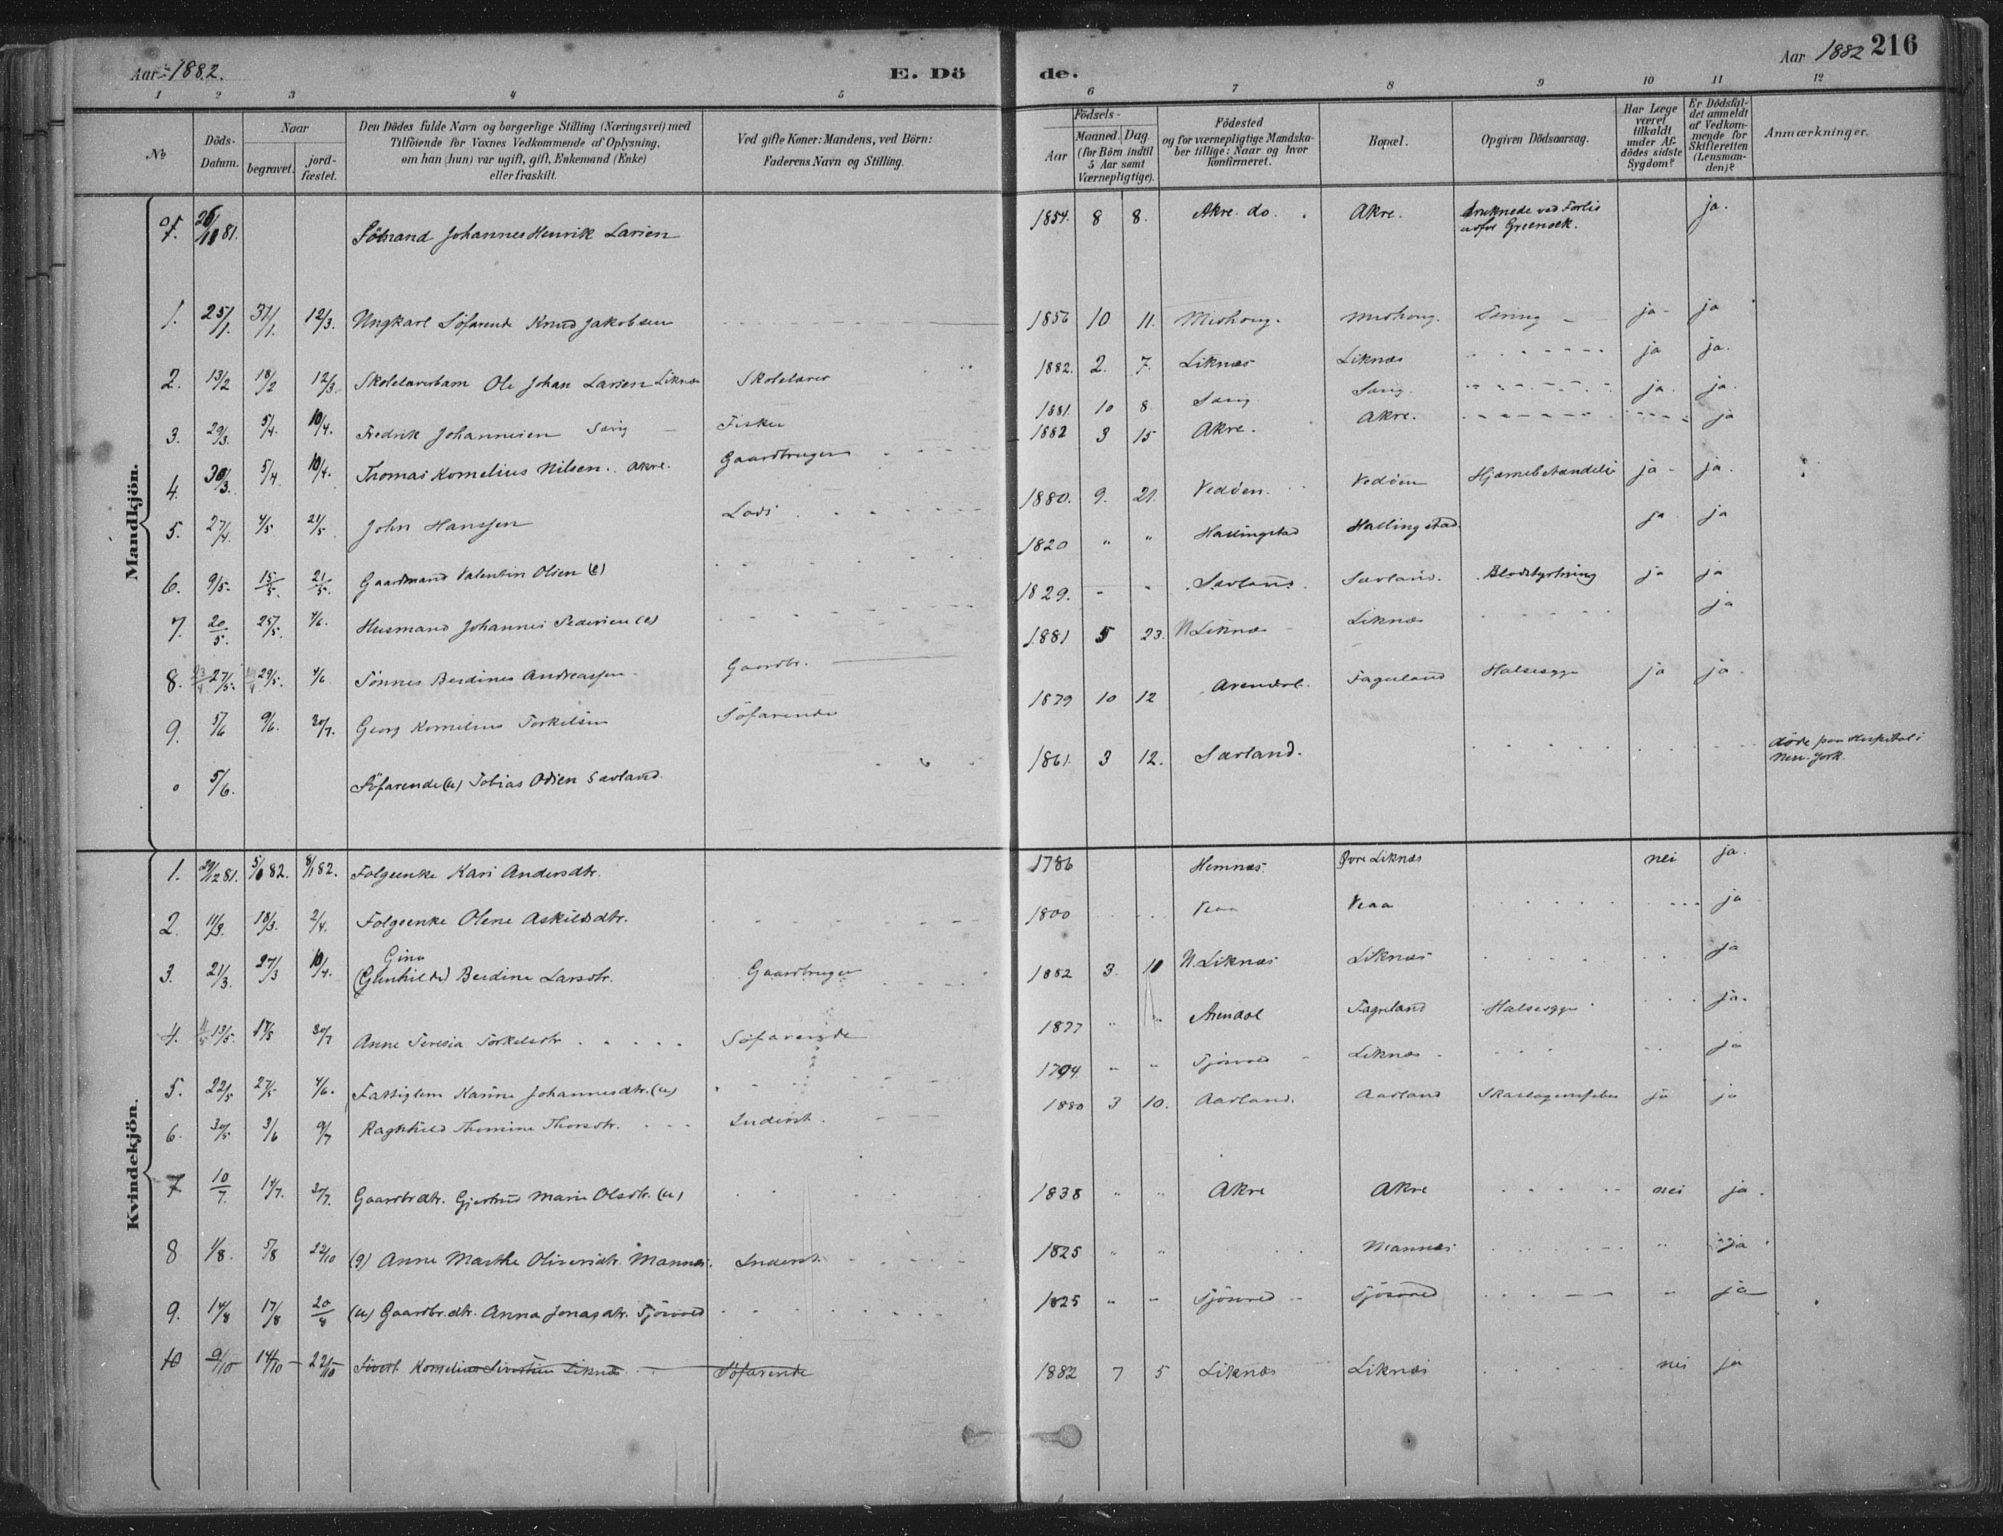 Aar 1882.
E. Dö
de.
Aar 1882 216
1 2 3 4 5 6 7 8 9 10 11 12
No
Döds-Datum.
Naar
begravet.
jord-fæstet.
Den Dödes fulde Navn og borgerlige Stilling (Næringsvei) med
Tilföiende for Voxnes Vedkommende af Oplysning,
om han (hun) var ugift, gift, Enkemand (Enke)
eller fraskilt.
Ved gifte Koner: Mandens, ved Börn:
Faderens Navn og Stilling.
Födsels-
Aar
Maaned. Dag.
(for Börn indtil
5 Aar samt
Værnepligtige).
Födested
og for værnepligtige Mandska-
ber tillige: Naar og hvor
konfirmeret.
Bopæl.
Opgiven Dödsaarsag.
Har Læge
været
tilkaldt
under Af-
dödes sidste
Sygdom?
Er Dödsfal-
det anmeldt
af Vedkom-
mende for
Skifteretten
(Lensman-
den)?
Anmærkninger.
Mandkjön.
Sömand Johannes Henrik Larsen 1854. 8 8. Akre. do. Akre. druknede ved Forlis udfor Greenock. ja.
1. 25/1. 31/1. 12/3. Ungkarl Söfarende Knud Jakobsen 1856 10 11. Mishong. Mishong. Tæring ja ja
2. 13/2 18/2 12/3 Skolelærerbarn Ole Johan Larsen Liknæs Skolelærer 1882. 2. 7. Liknæs Liknæs ja ja.
3. 29/3. 5/4. 10/4. Fredrik Johannesen Særig Fisker 1881. 10 8. ja. ja.
4. 30/3. 5/4 10/4. Thomas Kornelius Nilsen. Akre. Gaardbruger 1882 3 15 Akre. Akre. ja
5. 27/4. 4/5 21/5 John Hanssen Lods 1880. 9. 21. Vedöen. Vedöen Hjernebetændelse ja ja.
6. 9/5. 15/5 21/5. Gaardmand Valentin Olsen (e) 1820 " " Hallingstad Hallingstad ja ja
7. 20/5. 25/5. 4/6. Husmand Johannes Pedersen (e) 1829. - - Sævland. Sævland. Blodstyrtning ja ja
8. 27/5. 29/5. 4/6 Tönnes Berdines Andreassen. Gaardbr. 1881 5 23. N. Liknæs Liknæs ja
9. 5/6 9/6. 30/7. Georg Kornelius Torkelsen Söfarende 1879 10 12 Arendal. Fageland Halsesyge ja ja.
0 5/6. Söfarende (u) Tobias Olsen Sævland. 1861. 3 12. Sævland. döde paa Hospital i New-York.
Kvindekjön.
1. 29/12 81. 5/1 82. 8/1 82. Folgeenke Kari Andersdtr. 1786 Hemnæs Övre Liknæs nei ja.
2. 11/3. 18/3. 2/4. Folgeenke Olene Askildsdtr. 1800 Veaa Veaa ja
3. 21/3. 27/3 10/4. Gina (Gunhilde) Berdine Larsdtr. Gaardbruger 1882 3. 10 N. Liknæs Liknæs ja
4. 13/5. 17/5 30/7 Anne Teresia Torkelsdtr. Söfarende 1877 " " Arendal Fageland Halsesyge ja.
5. 22/5 27/5 4/6. Fattiglem Karine Johannesdtr. (u) 1794. " " Sjösved Liknæs ja
6. 30/5 3/6 9/7 Raghhild Thomine Thorsdtr. Inderst. 1880 3 10. Aarland. Aarland Skarlagensfeber ja ja
7 10/7. 14/7. 30/7. Gaardbrdtr. Gjertrud Marie Olsdtr. (u) 1838 " " Akre Akre nei ja.
8 1/8. 5/8 22/10 (g) Anne Marthe Oliversdtr. Mannes. Inderst. 1825 " " Mannes " ja
9. 14/8 17/8 20/8 (u) Gaardbr.dtr. Anna Jonasdtr. Sjösved 1825 " " Sjösved Sjösved " ja
10 9/10 14/10 22/10 Sivert Kornelius Sivertsen Liknæs Söfarende 1882 7 5 Liknæs Liknæs nei ja